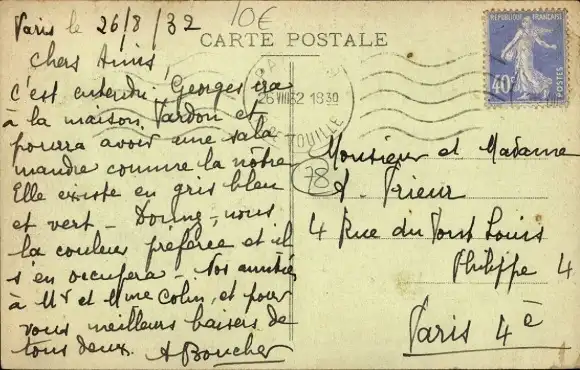 Paris le 26/8/32
10€
CARTE POSTALE
Chers Amis,
c'est entendu Georges ira
à la maison Vardon et
pourra avoir une sala
mandre comme la nôtre
Elle existe en gris bleu
et vert - Donnez-nous
la couleur préférée et il
s'en occupera - Nos amitiés
à Mr et Mme Colin, et pour
vous meilleurs baisers de
tous deux. A Boucher
REPUBLIQUE FRANÇAISE
40c
POSTES
26 VIII 32 1830
78
Monsieur et Madame
Prieur
4 Rue du Pont Louis
Philippe 4
Paris 4è